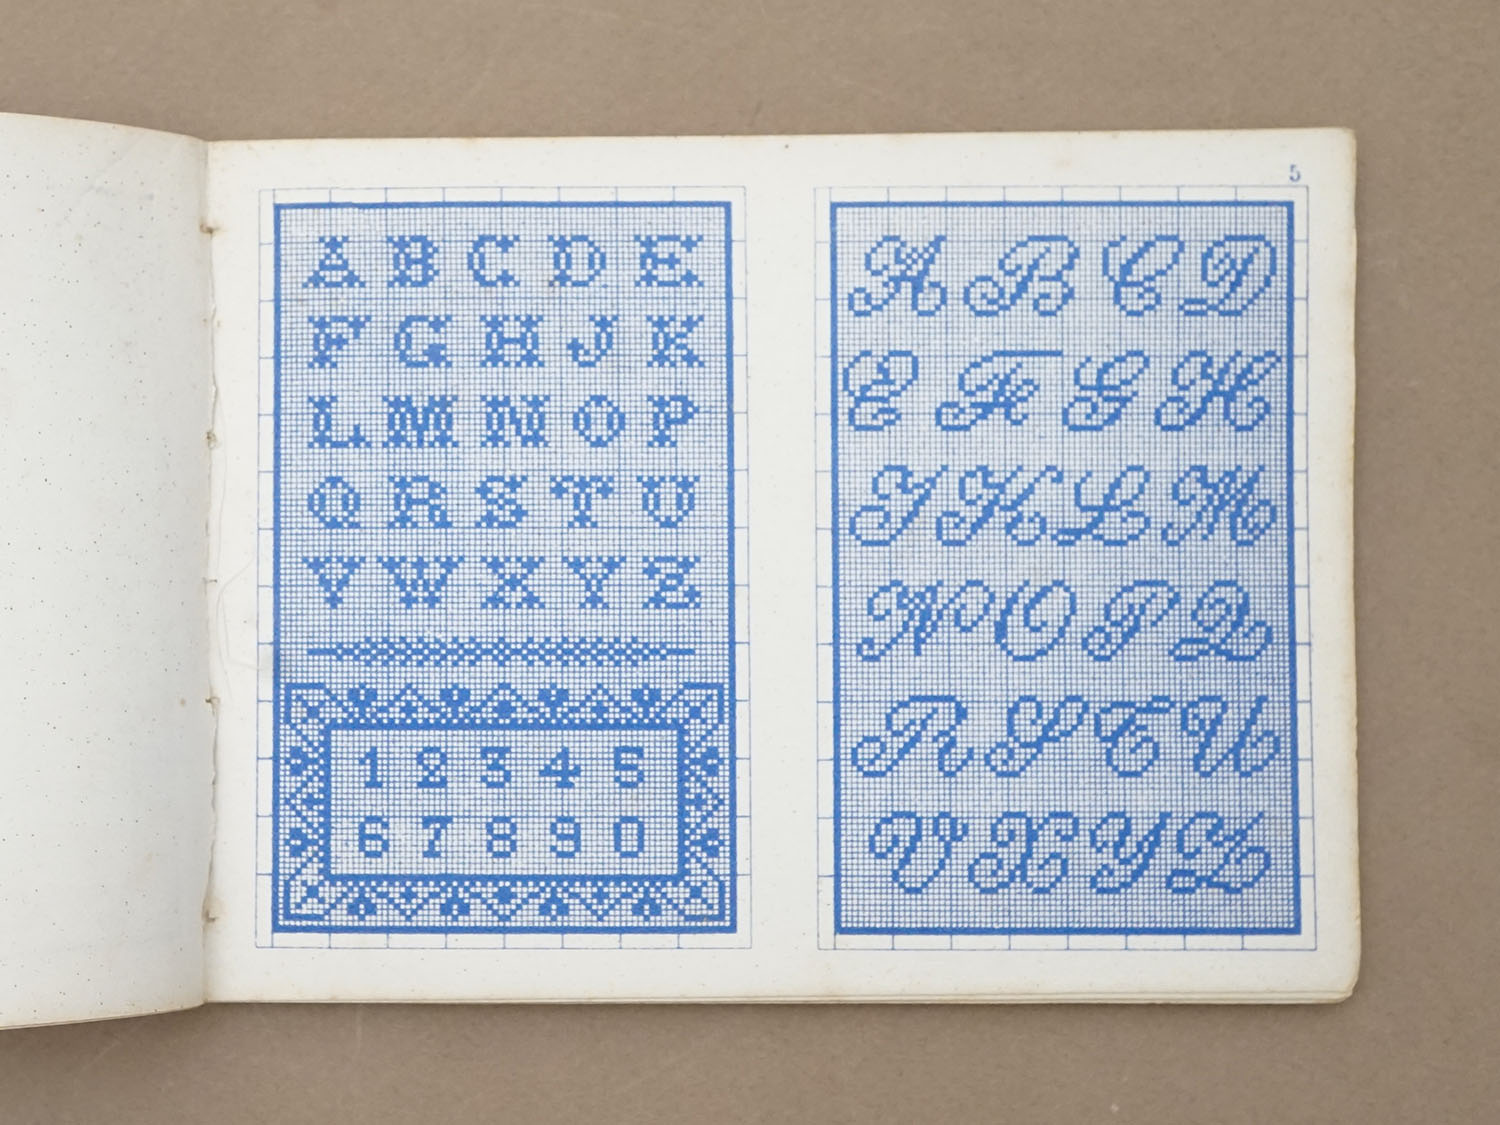 5
A B C D E
F G H J K
L M N O P
Q R S T U
V W X Y Z
1 2 3 4 5
6 7 8 9 0
A B C D
E F G H
J K L M
N O P Q
R S T U
V X Y Z